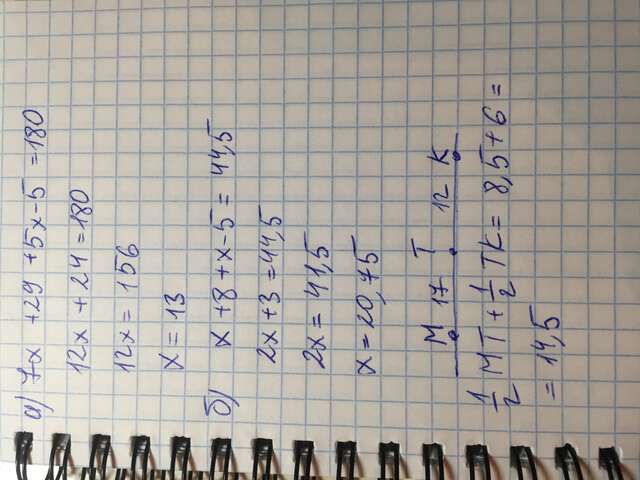 а) 7x + 29 + 5x - 5 = 180
12x + 24 = 180
12x = 156
x = 13
б) x + 8 + x - 5 = 44,5
2x + 3 = 44,5
2x = 41,5
x = 20,75
M 17 T 12 K
1/2 MT + 1/2 TK = 8,5 + 6 =
= 14,5